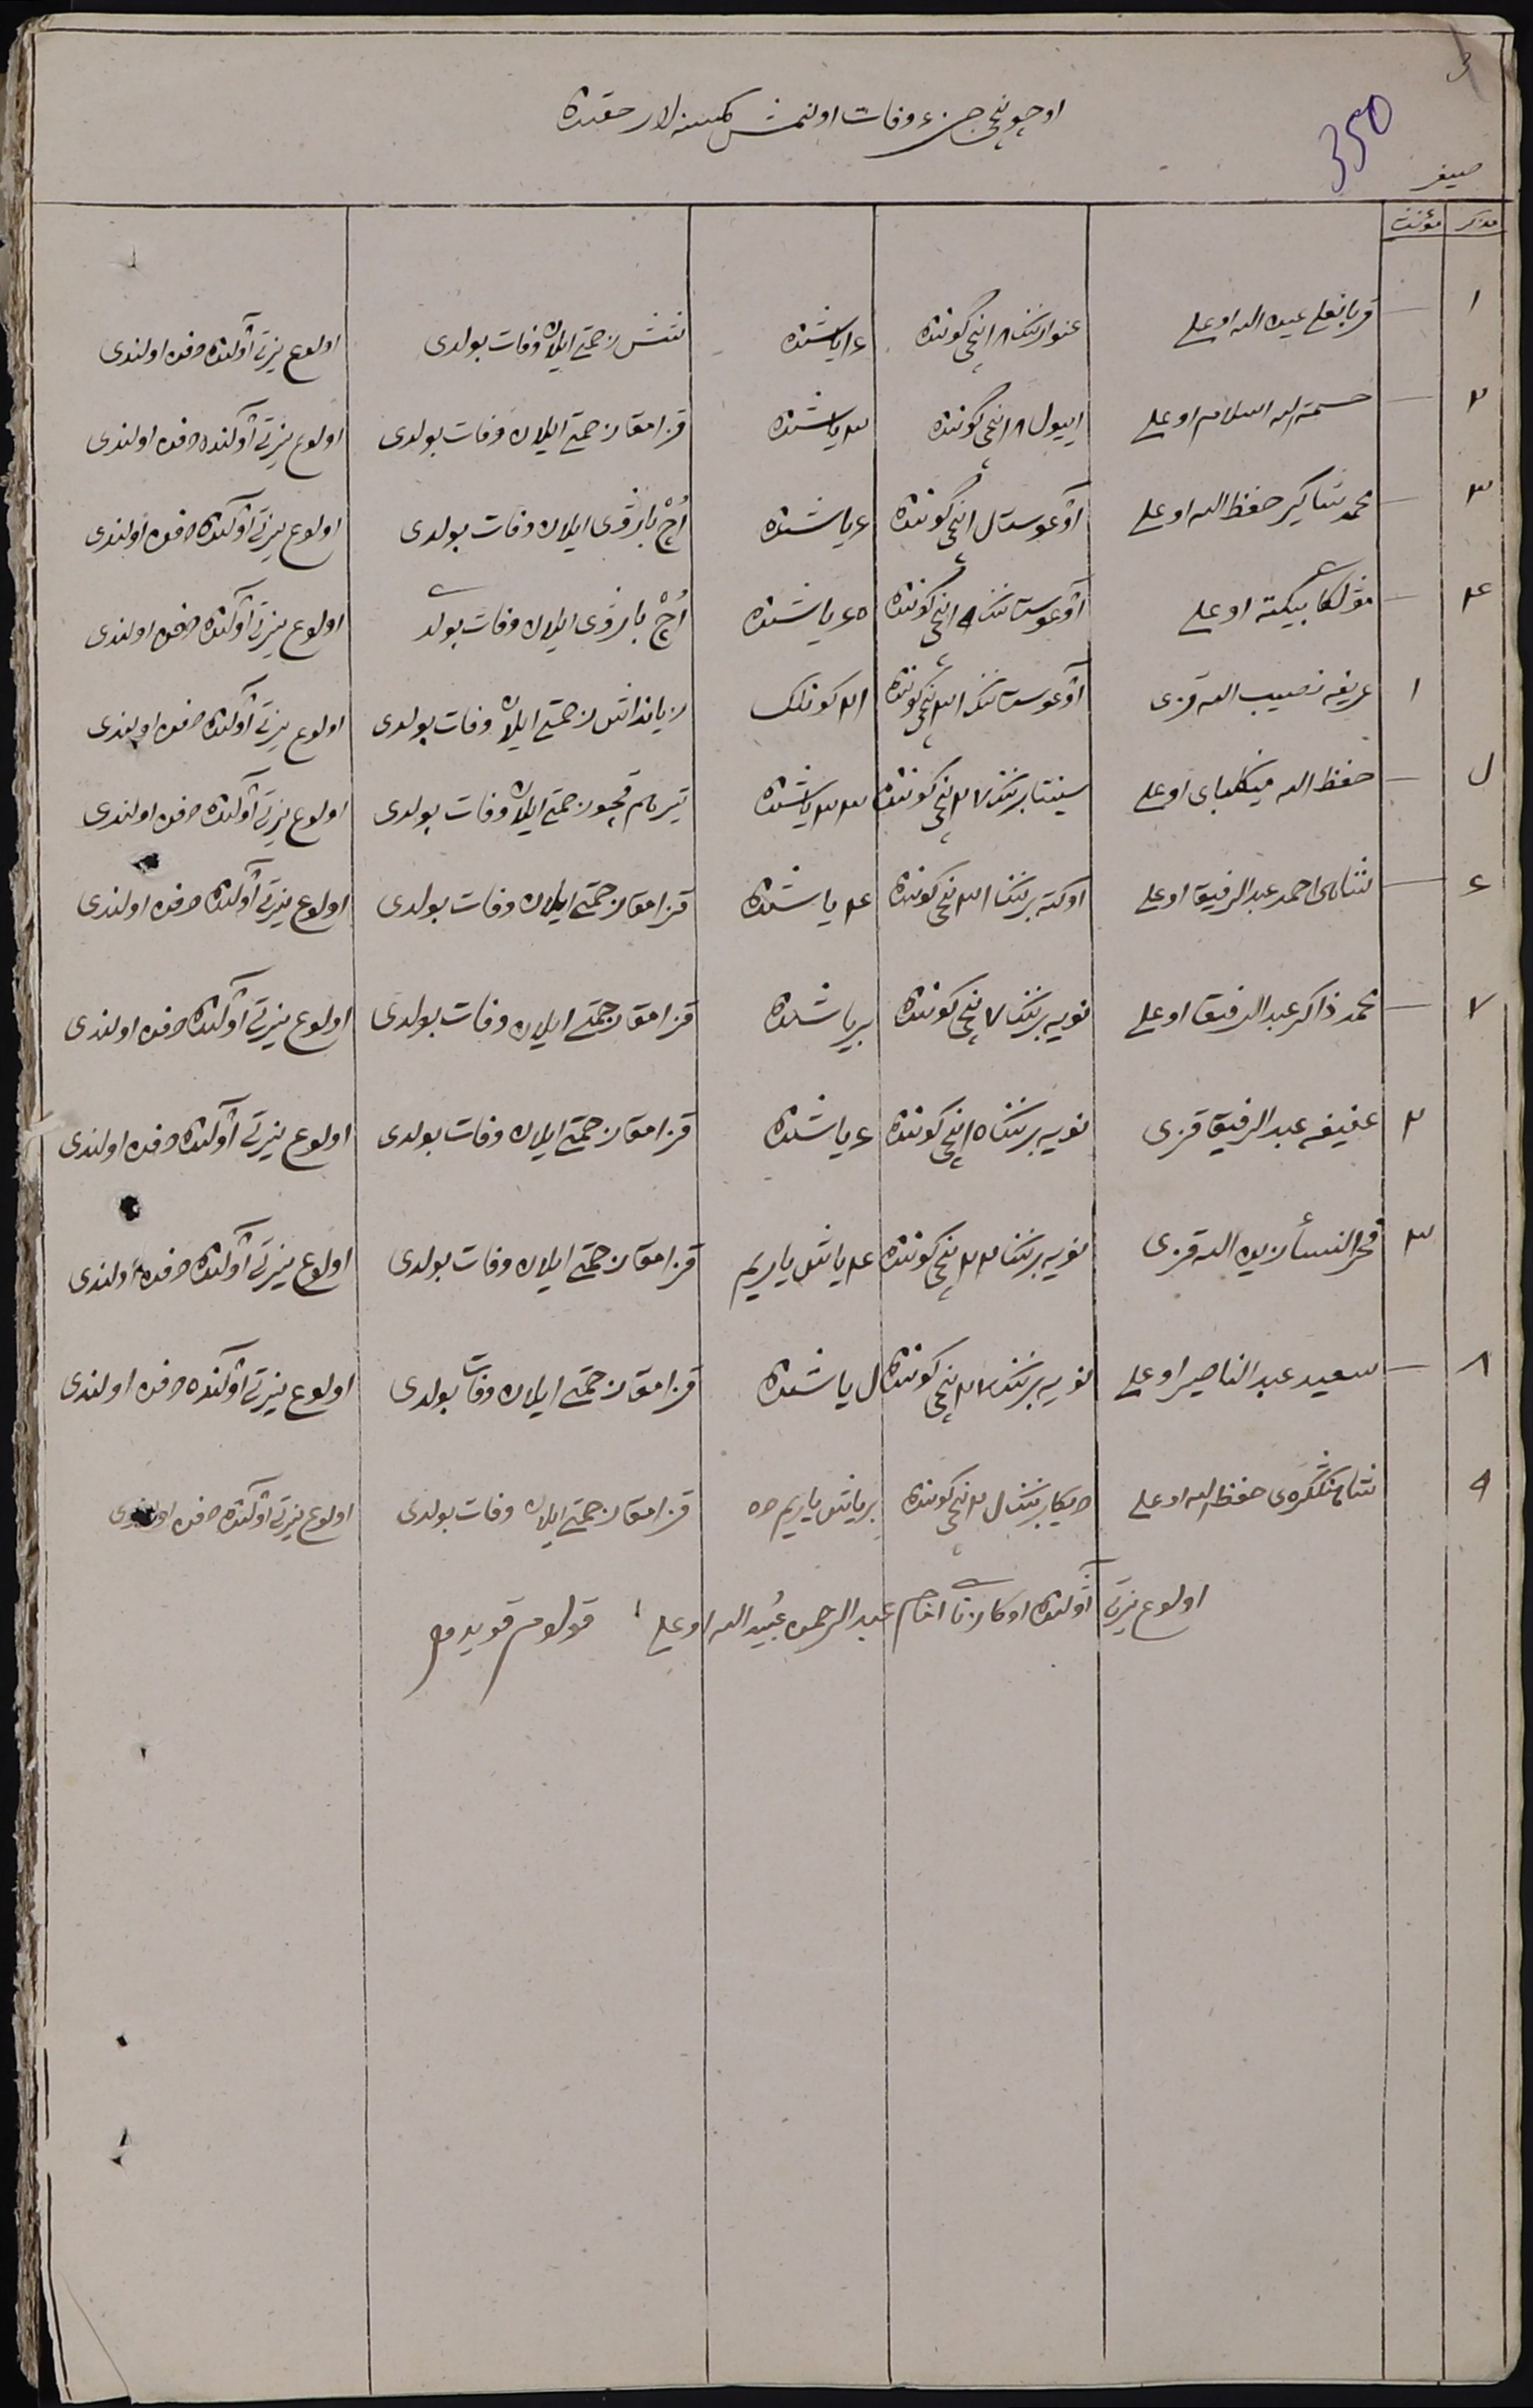 3
350
اوچونچی جزء وفات اولنمش کمسنه لار حقنده
صیغر
مذکر مؤنث
۱ — قربانعلی عبد الله اوغلی عنوارننک ۱۸ نچی کوننده ۱۶ یاشنده شش زحمتی ایلان وفات بولدی اولوغ یزتی آولنده دفن اولندی
۲ — حسمة الله اسلام اوغلی اییول ۱۸ نچی کوننده ۳ یاشنده قزامق زحمتی ایلان وفات بولدی اولوغ یزتی آولنده دفن اولندی
۳ — محمد شاکیر حفظ الله اوغلی آوغوست ۱۵ نچی کوننده ۶ یاشنده اُچ باروی ایلان وفات بولدی اولوغ یزتی آولنده دفن اولندی
۴ — بیکته اوغلی آوغوست ننک ۱۹ نچی کوننده ۶۵ یاشنده اُچ باروی ایلان وفات بولدی اولوغ یزتی آولنده دفن اولندی
۱ عریفه نصیب الله قزی آوغوست ننک ۳۱ نچی کوننده ۲۱ کونلک زیانداش زحمتی ایلان وفات بولدی اولوغ یزتی آولنده دفن اولندی
۵ — حفظ الله مینکلبای اوغلی سینتابرننک ۲۷ نچی کوننده ۳۳ یاشنده زحمتی ایلان وفات بولدی اولوغ یزتی آولنده دفن اولندی
۶ — شاهی احمد عبد الرفیق اوغلی اوکته برننک ۳۱ نچی کوننده ۴ یاشنده قزامق زحمتی ایلان وفات بولدی اولوغ یزتی آولنده دفن اولندی
۷ — محمد ذاکر عبد الرفیق اوغلی نویه برننک ۷ نچی کوننده بر یاشنده قزامق زحمتی ایلان وفات بولدی اولوغ یزتی آولنده دفن اولندی
۲ عفیفه عبد الرفیق قزی نویه برننک ۱۵ نچی کوننده ۶ یاشنده قزامق زحمتی ایلان وفات بولدی اولوغ یزتی آولنده دفن اولندی
۳ فخر النسأ قزی نویه برننک ۲۲ نچی کوننده ۴ یاش یاریم قزامق زحمتی ایلان وفات بولدی اولوغ یزتی آولنده دفن اولندی
۸ — سعید عبد الناصیر اوغلی نویه برننک ۲۸ نچی کوننده ۵ یاشنده قزامق زحمتی ایلان وفات بولدی اولوغ یزتی آولنده دفن اولندی
۹ — حفظ الله اوغلی دیکابرننک ۵ نچی کوننده بر یاش یاریم ده قزامق زحمتی ایلان وفات بولدی اولوغ یزتی آولنده دفن اولندی
اولوغ یزتی آولنده اوکازنای امام عبد الرحمن عُبید الله اوغلی قولوم قویدم